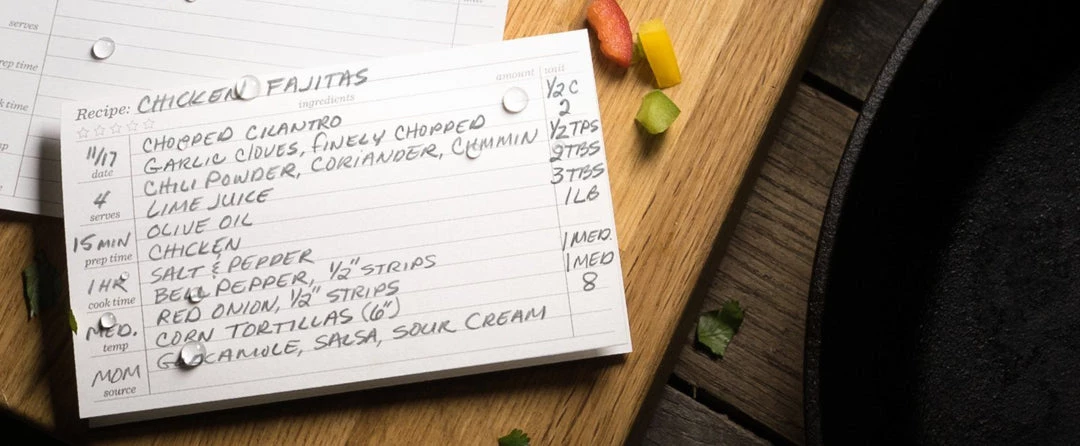 serves
prep time
k time
unit
Recipe: CHICKEN FAJITAS
ingredients
amount
unit
CHOPPED CILANTRO 1/2 C
GARLIC CLOVES, FINELY CHOPPED 2
CHILI POWDER, CORIANDER, CUMMIN 1/2 TPS
LIME JUICE 2TBS
OLIVE OIL 3TBS
CHICKEN 1LB
SALT & PEPPER
BELL PEPPER, 1/2" STRIPS 1MED.
RED ONION, 1/2" STRIPS 1MED
CORN TORTILLAS (6") 8
GUACAMOLE, SALSA, SOUR CREAM
11/17
date
4
serves
15 MIN
prep time
1 HR
cook time
MED.
temp
MOM
source